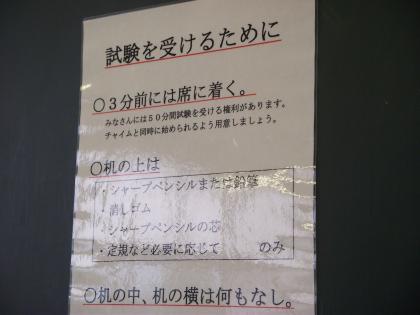 試験を受けるために
〇３分前には席に着く。
みなさんには５０分間試験を受ける権利があります。
チャイムと同時に始められるよう用意しましょう。
〇机の上は
・シャープペンシルまたは鉛筆
・消しゴム
・シャープペンシルの芯
・定規など必要に応じて　のみ
〇机の中、机の横は何もなし。